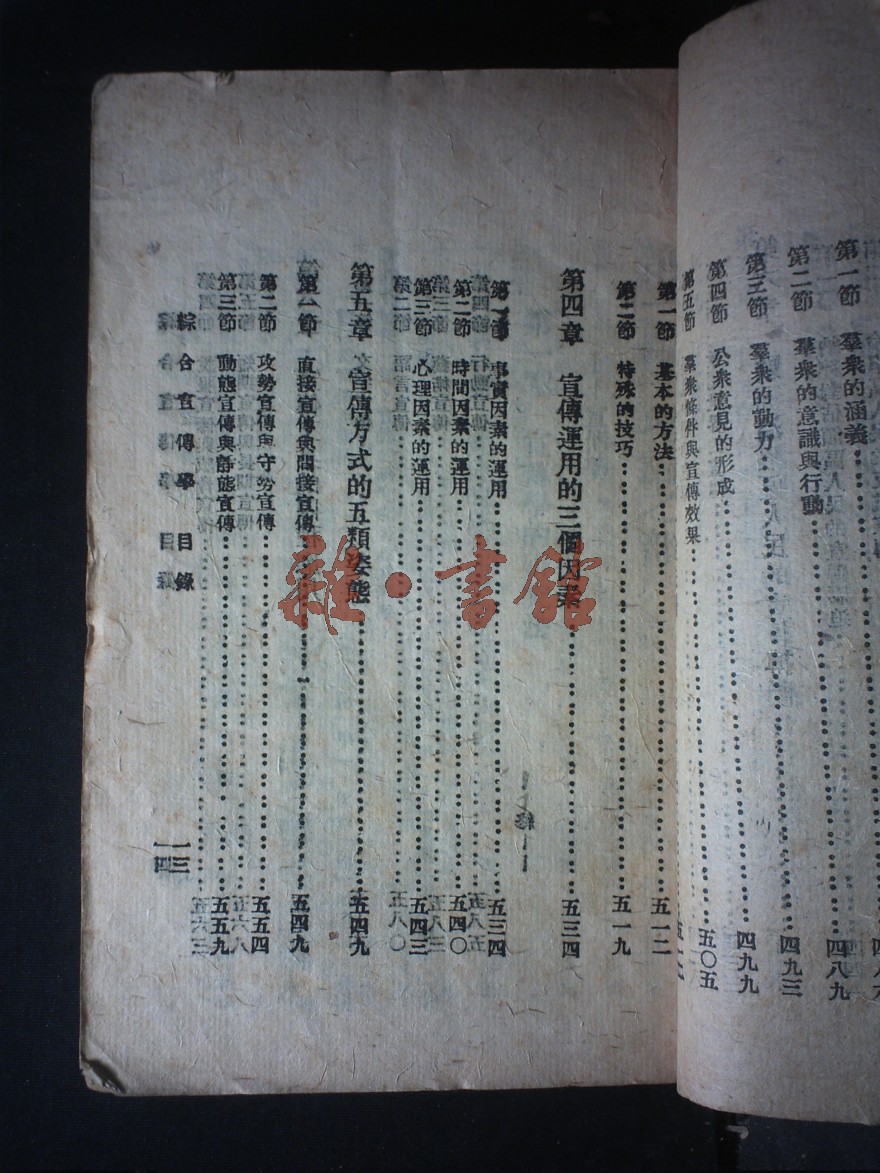 第一節 羣衆的涵義 四八九
第二節 羣衆的意識與行動 四九三
第三節 羣衆的動力 四九九
第四節 公衆意見的形成 五〇五
第五節 羣衆條件與宣傳效果
第一節 基本的方法 五一二
第二節 特殊的技巧 五一九
第四章 宣傳運用的三個因素 五三四
第一節 事實因素的運用 五三四
第二節 時間因素的運用 五四〇
第三節 心理因素的運用 五四三
第五章 宣傳方式的五類姿態 五四九
第一節 直接宣傳與間接宣傳 五四九
第二節 攻勢宣傳與守勢宣傳 五五四
第三節 動態宣傳與靜態宣傳 五五九
綜合宣傳學 目錄 一三
雜·書館